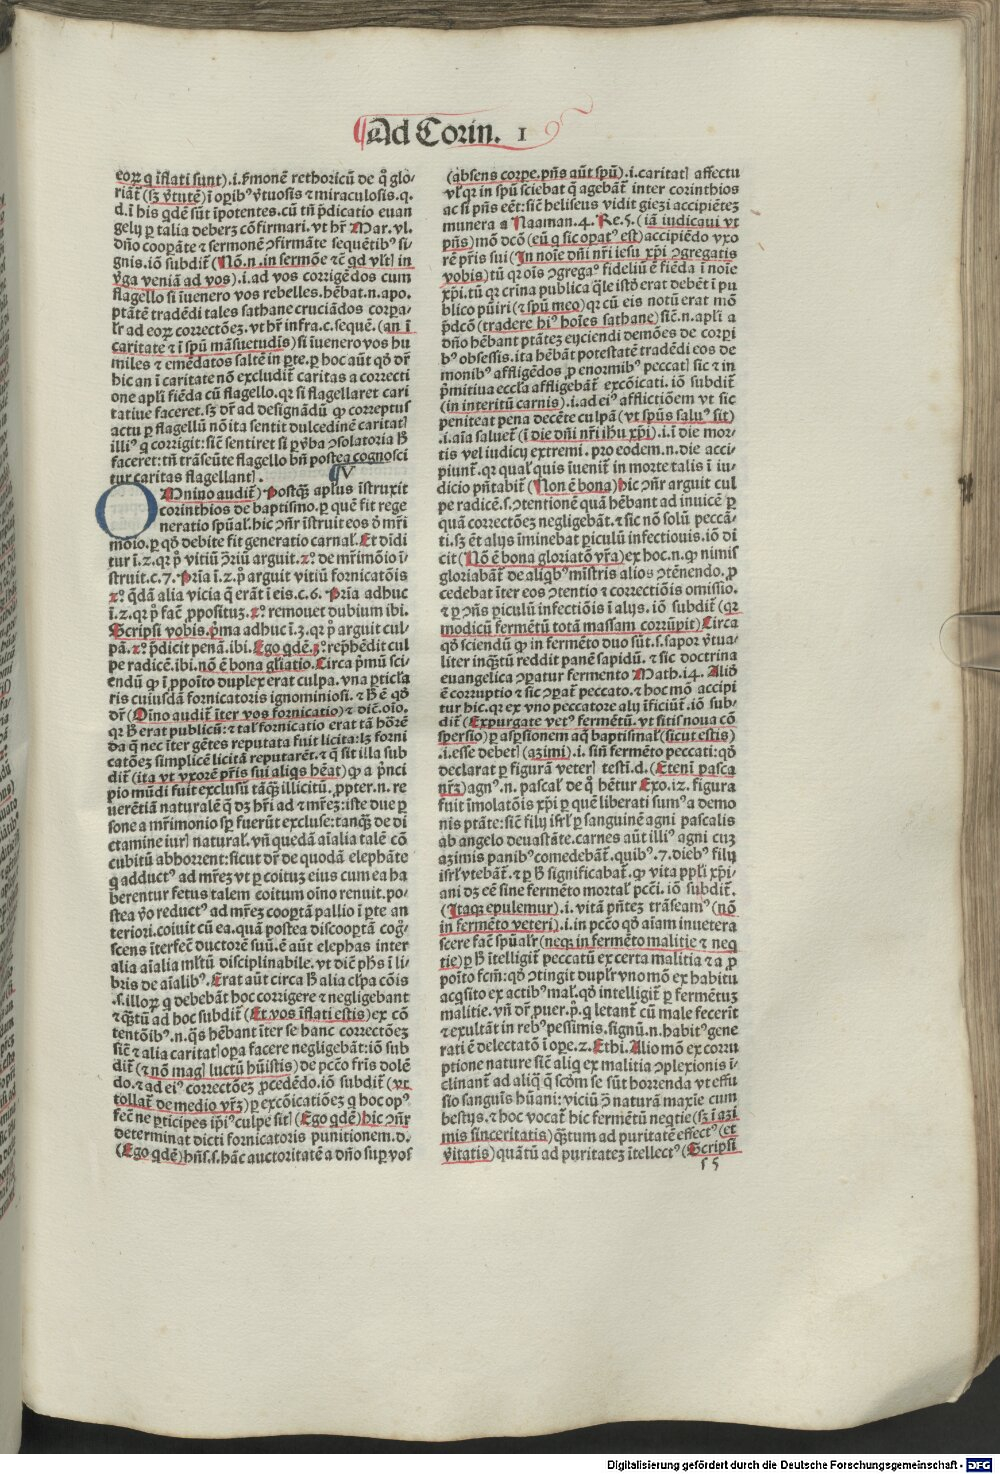 Ad Corin. 1
eoꝝ q̄ īflati sunt).i.s̄monē rethoricū de q̄ glo⸗
riāt᷑ (sꝫ v̄tutē) ī oꝑibꝰ v̄tuosis ⁊ miraculosis.q.
d.ī his qdē sūt īpotentes.cū tn̄ p̄dicatio euan
gelij ꝑ talia deberꝫ cōfirmari.vt hr̄ Mar.vl.
dn̄o cooꝑāte ⁊ sermonē ꝯfirmāte sequētibꝰ si⸗
gnis.iō subdit᷑ (Nō.n.in sermōe ⁊c̄ qd vl̄t) in
v̄ga veniā ad vos).i.ad vos corrigēdos cum
flagello si īuenero vos rebelles.hēbat.n.apo.
ptātē tradēdi tales sathane cruciādos corpa⸗
lr̄ ad eoꝝ correctōeꝫ.vt hr̄ infra.c.sequē.(an ī
caritate ⁊ ī spū māsuetudīs) si īuenero vos hu
miles ⁊ emēdatos saltē in ꝑte.ꝑ hoc aūt qđ dr̄
hic an ī caritate nō excludit᷑ caritas a correcti
one apl̄i fiēda cū flagello.qr si flagellaret cari
tatiue faceret.sꝫ dr̄ ad designādū ꝙ correptus
actu ꝑ flagellū nō ita sentit dulcedinē caritat̄
illiꝰ q̄ corrigit:sic̄ sentiret si ꝑ v̄ba ꝯsolatoria ħ
faceret:tn̄ trāseūte flagello bn̄ postea cognosci
tur caritas flagellant̄. ¶V
OMnino audit᷑) Postꝙ̄ apl̄us īstruxit
corinthios de baptismo.ꝑ quē fit rege
neratio spūal.hic ꝯn̄r īstruit eos đ mr̄i
mōio.ꝑ qđ debite fit generatio carnal̄.Et diuidi
tur ī.2.qr p̄ vitiū ꝯriū arguit.2.º de mr̄imōio ī⸗
struit.c.7.Pr̄ia ī.2.p̄ arguit vitiū fornicatōis
2.º q̄dā alia vicia q̄ erāt ī eis.c.6.Pr̄ia adhuc
ī.2.qr p̄ fac̄ ꝓpositū.2.º remouet dubium ibi.
Scripsi vobis.p̄ma adhuc ī.3.qr p̄ arguit cul⸗
pā.2.º p̄dicit penā.ibi.Ego qdē.3.º rep̄hēdit cul
pe radicē.ibi.nō ē bona gl̄iatio.Circa p̄mū sci⸗
endū ꝙ ī ꝓpoīto duplex erat culpa.vna ꝑticl̄a
ris cuiusdā fornicatoris ignominiosi.⁊ ħ ē qđ
dr̄ (Oīno audit᷑ īter vos fornicatio) ⁊ dīc̄.oīo.
qr ħ erat publicū:⁊ tal̄ fornicatio erat tā hōrē
da q̄ nec īter gētes reputata fuit licita:lꝫ forni
catōeꝫ simplicē licitā reputarēt.⁊ q̄ sit illa sub
dit᷑ (ita vt vxorē pr̄is sui aliqs hēat) ꝙ a p̄nci
pio mūdi fuit exclusū tāꝙ̄ illicitū.ꝓpter.n.re
uerētiā naturalē q̄ dꝫ hr̄i ad ⁊ mr̄eꝫ:iste due ꝑ
sone a mr̄imonio sp̄ fuerūt excluse:tanꝙ̄ de di
ctamine iur̄ natural̄.vn̄ quedā aīalia talē cō
cubitū abhorrent:sicut dr̄ de quodā elephāte
q̄ adductꝰ ad mr̄eꝫ vt ꝑ coituꝫ eius cum ea ha
berentur fetus talem coitum oīno renuit.po⸗
stea v̄o reductꝰ ad mr̄eꝫ cooꝑtā pallio ī ꝑte an
teriori.coiuit cū ea.quā postea discooꝑtā coḡ⸗
scens īterfec̄ ductorē suū.ē aūt elephas inter
alia aīalia ml̄tū disciplinabile.vt dic̄ ph̄s ī li⸗
bris de aīalibꝰ.Erat aūt circa ħ alia cl̄pa cōis
.s.illoꝝ q̄ debebāt hoc corrigere ⁊ negligebant
⁊ ꝙ̄tū ad hoc subdit᷑ (Et vos īflati estis) ex cō
tentōibꝰ.n.q̄s hēbant īter se hanc correctōeꝫ
sic̄ ⁊ alia caritat̄ oꝑa facere negligebāt:iō sub
dit᷑ (⁊ nō maḡ luctū hūistis) de pcc̄o fr̄is dolē
do.⁊ ad eiꝰ correctōeꝫ ꝓcedēdo.iō subdit᷑ (vt
tollat᷑ de medio vr̄ꝫ) ꝑ excōicatiōeꝫ q̄ hoc opꝰ
fec̄ ne ꝑticipes ip̄iꝰ culpe sit̄ (Ego qdē) hic ꝯn̄r
determinat dicti fornicatoris punitionem.d.
(Ego qdē) hn̄s.s.hāc auctoritatē a dn̄o suꝑ vos
(absens corꝑe.pn̄s aūt spū).i.caritat̄ affectu
vl̄ qr in spū sciebat q̄ agebāt᷑ inter corinthios
ac si pn̄s eēt:sic̄ heliseus vidit giezi accipiētez
munera a Naaman.4. Re.5. (iā iudicaui vt
pn̄s) mō dc̄o (eū q̄ sic oꝑatꝰ est) accipiēdo vxo
rē pr̄is sui (In noīe dn̄i nr̄i iesu xp̄i ꝯgregatis
vobis) tū qr oīs ꝯgregaº fideliū ē fiēda ī noīe
xp̄i.tū qr crīna publica q̄le istđ erat debēt ī pu
blico pūiri (⁊ spū meo) qr cū eis notū erat mō
p̄dc̄o (tradere hiꝰ hoīes sathane) sic̄.n.apl̄i a
dn̄o hēbant ptāteꝫ eijciendi demōes de corꝑi
bꝰ obsessis.ita hēbāt potestatē tradēdi eos de
monibꝰ affligēdos ꝓ enormibꝰ peccat̄ sic ⁊ in
p̄mitiua eccl̄a affligebāt᷑ excōicati.iō subdit᷑
(in interitū carnis).i.ad eiꝰ afflictiōem vt sic
peniteat pena decēte culpā (vt spūs saluꝰ sit)
.i.aīa saluet᷑ (ī die dn̄i nr̄i ihu xp̄i).i.ī die mor⸗
tis vel iudicij extremi.pro eodem.n.die acci⸗
piunt᷑.qr qual̄ quis īuenit᷑ in morte talis ī iu⸗
dicio pn̄tabit᷑ (Non ē bona) hic ꝯn̄r arguit cul
pe radicē.s.ꝯtentionē quā hēbant ad inuicē ꝑ
quā correctōeꝫ negligebāt.⁊ sic nō solū peccā⸗
ti.sꝫ ēt alijs īminebat ꝑiculū infectiouis.iō di
cit (Nō ē bona gloriatō vr̄a) ex hoc.n.ꝙ nimis
gloriabāt᷑ de aliqbꝰ mīstris alios ꝯtēnendo.ꝓ
cedebat īter eos ꝯtentio ⁊ correctiōis omissio.
⁊ ꝑ ꝯn̄s ꝑiculū infectiōis ī alijs.iō subdit᷑ (qr
modicū fermētū totā massam corrūpit) Circa
qđ sciendū ꝙ in fermēto duo sūt.s.sapor v̄tua⸗
liter inꝙ̄tū reddit panē sapidū.⁊ sic doctrina
euangelica ꝯꝑatur fermento Math.14. Aliō
ē corruptio ⁊ sic ꝯꝑat᷑ peccato.⁊ hoc mō accipi
tur hic.qr ex vno peccatore alij īficiūt᷑.iō sub⸗
dit᷑ (Expurgate vetꝰ fermētū.vt sitis noua cō
sꝑsio) ꝑ asꝑsionem aq̄ baptismal̄ (sicut estis)
.i.esse debet̄ (azimi).i.sin̄ fermēto peccati:qđ
declarat ꝑ figurā veter̄ testī.d.(Etenī pasca
nr̄ꝫ) agnꝰ.n.pascal̄ de q̄ hētur Exo.12.figura
fuit īmolatōis xp̄i ꝑ quē liberati sumꝰ a demo
nis ptāte:sic̄ filij isrl̄ ꝑ sanguinē agni pascalis
ab angelo deuastāte.carnes aūt illiꝰ agni cuꝫ
azimis panibꝰ comedebāt᷑.quibꝰ.7.diebꝰ filij
isrl̄ vtebāt᷑.⁊ ꝑ ħ significabat᷑.ꝙ vita ppl̄i xp̄i⸗
ani dꝫ eē sine fermēto mortal̄ pcc̄i.iō subdit᷑.
(Itaqꝫ epulemur).i.vitā pn̄teꝫ trāseamꝰ (nō
in fermēto veteri).i.in pcc̄o qđ aīam inuetera
scere fac̄ spūalr̄ (neqꝫ in fermēto malitie ⁊ neq
tie) ꝑ ħ ītelligit᷑ peccatū ex certa malitia ⁊ a ꝓ
poīto fcm̄:qđ ꝯtingit duplr̄ vno mō ex habitu
acq̄sito ex actibꝰ mal̄.qđ intelligit᷑ ꝑ fermētuꝫ
malitie.vn̄ dr̄ ꝓuer.2.q̄ letant᷑ cū male fecerīt
⁊ exultāt in rebꝰ pessimis.signū.n.habitꝰ gene
rati ē delectatō ī oꝑe.2.Ethi.Alio mō ex corru
ptione nature sic̄ aliq̄ ex malitia ꝯplexionis ī⸗
clinant᷑ ad aliq̄ q̄ scđm se sūt horrenda vt effu
sio sanguīs hūani:viciū ꝯ naturā maxīe cum
bestijs.⁊ hoc vocat᷑ hic fermētū neqtie (sꝫ ī azi
mis sinceritatis) ꝙ̄tum ad puritatē effectꝰ (et
v̄itatis) quātū ad puritateꝫ ītellectꝰ (Scripsi
ſ 5
Digitalisierung gefördert durch die Deutsche Forschungsgemeinschaft - DFG